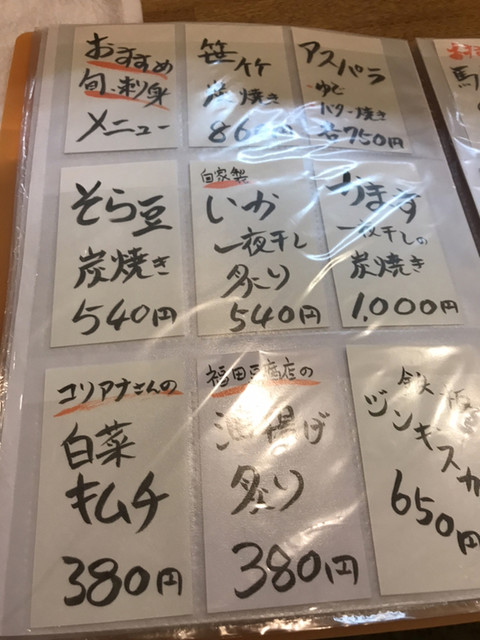 おすすめ
旬の刺身
メニュー
笹竹
炭焼き
アスパラ
・ゆで
・バター焼き
各750円
そら豆
炭焼き
540円
自家製
いか
一夜干し
炙り
540円
かます
一夜干しの
炭焼き
1,000円
コリアナさんの
白菜
キムチ
380円
福田豆腐店の
油揚げ
炙り
380円
ジンギスカ
650円
馬